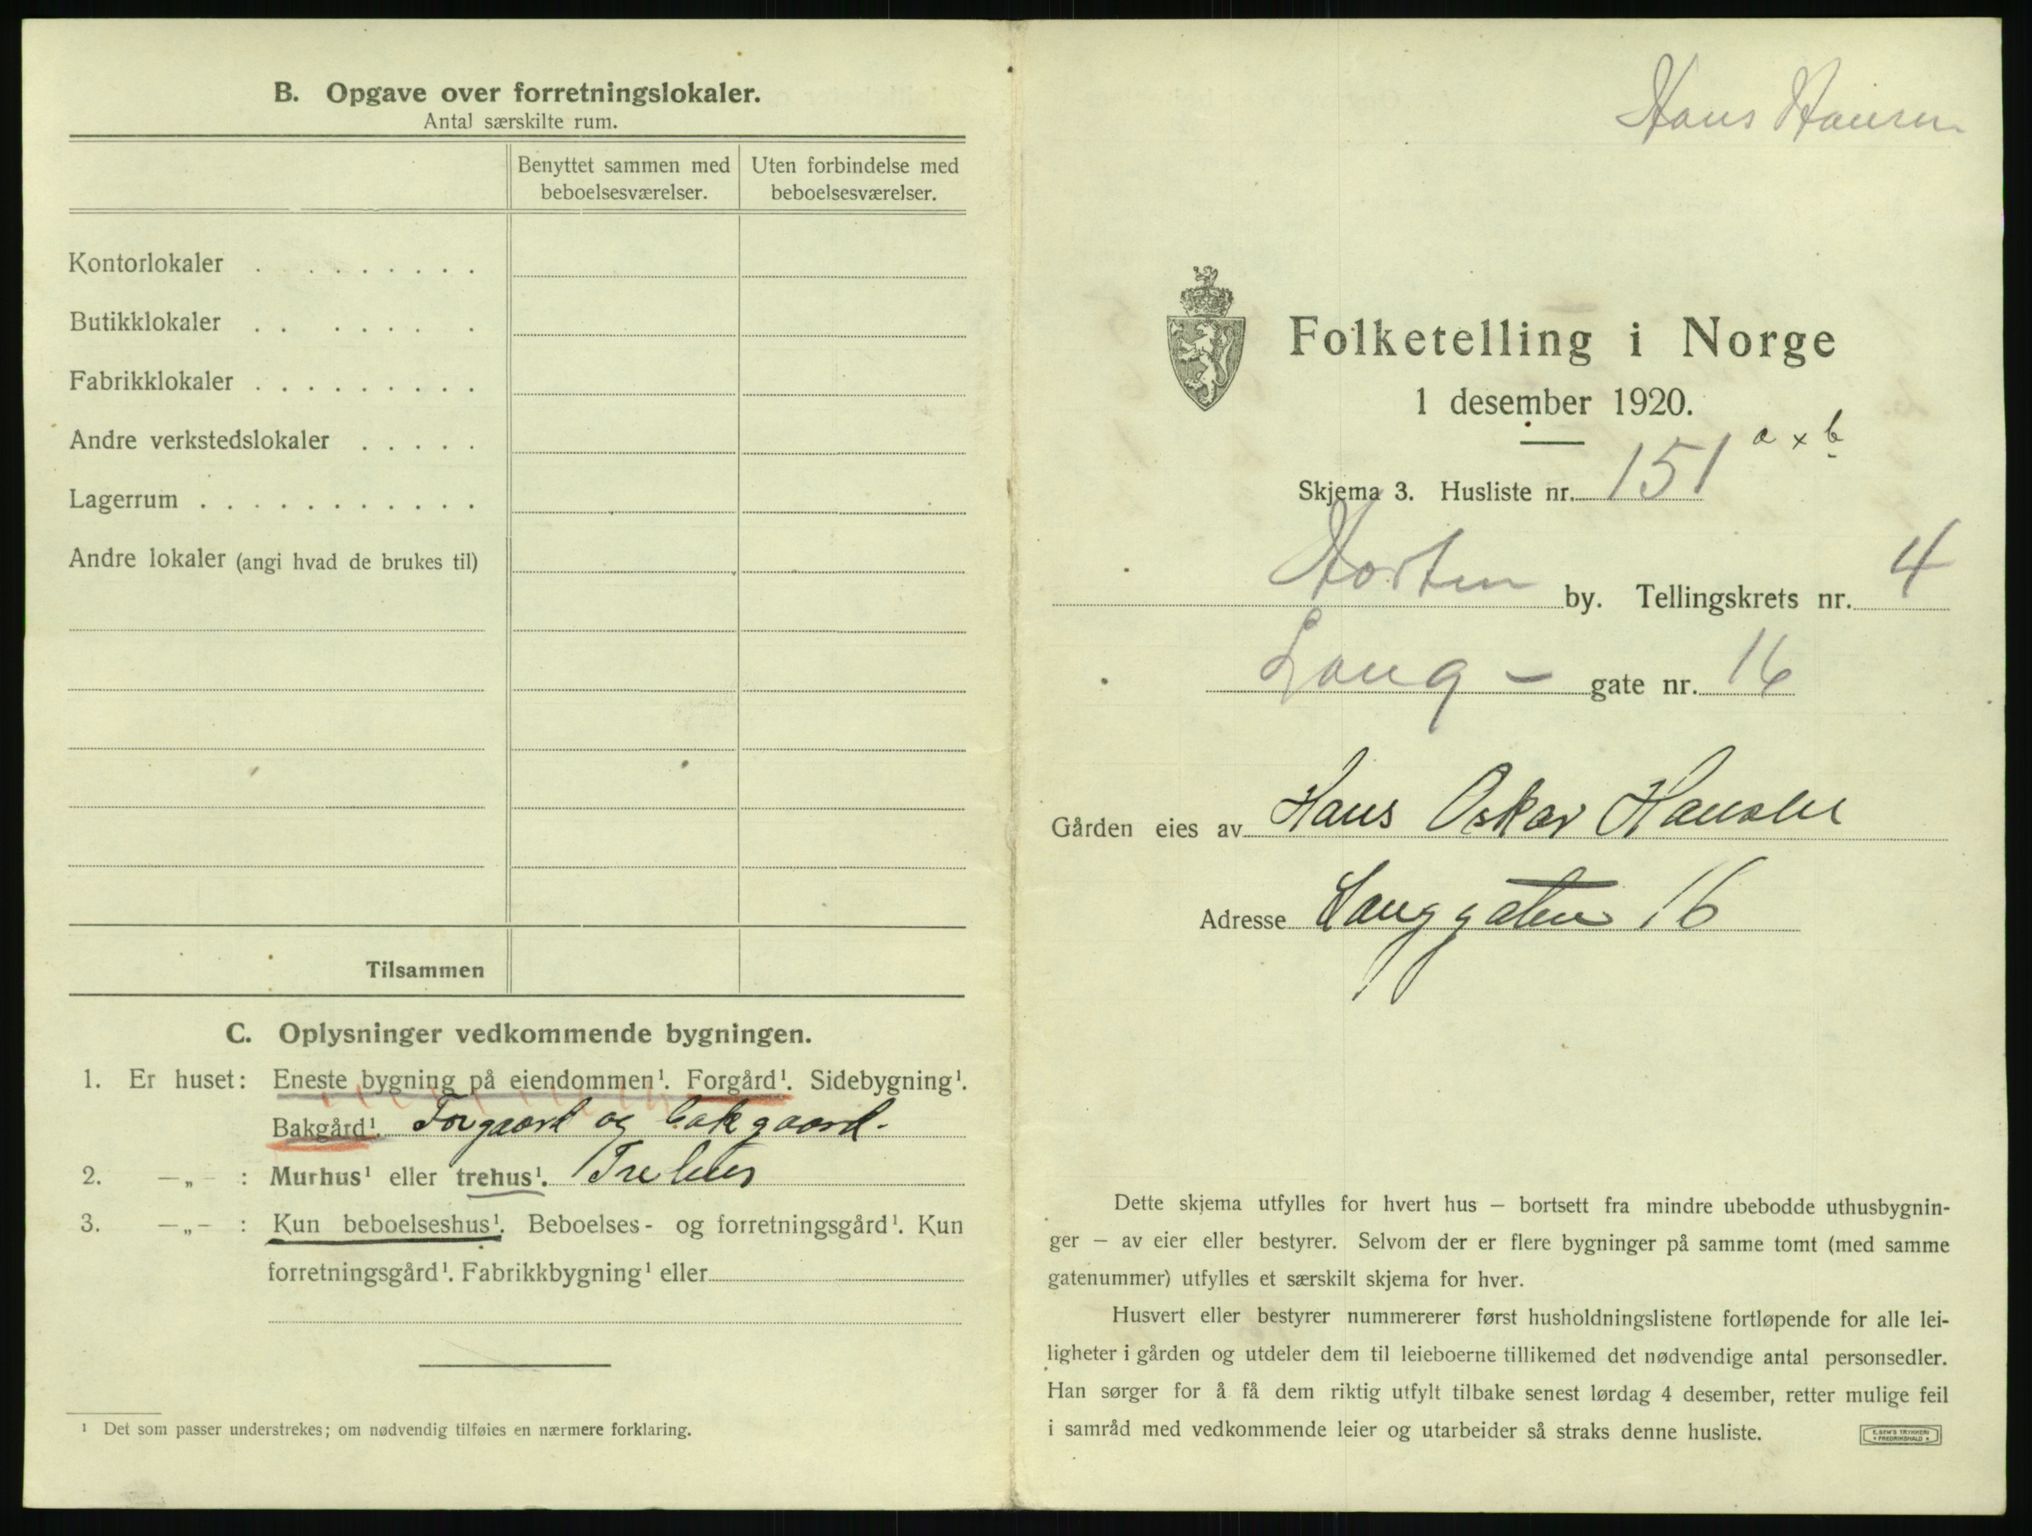 B. Opgave over forretningslokaler.
Antal særskilte rum.
Benyttet sammen med beboelsesværelser.
Uten forbindelse med beboelsesværelser.
Kontorlokaler . . . . . . . . .
Butikklokaler . . . . . . . .
Fabrikklokaler . . . . . . . . .
Andre verkstedslokaler . . . . .
Lagerrum . . . . . . . . . . .
Andre lokaler (angi hvad de brukes til)
Tilsammen
C. Oplysninger vedkommende bygningen.
1. Er huset: Eneste bygning på eiendommen¹. Forgård¹. Sidebygning¹.
Bakgård¹. Forgaard og bakgaard.
2. —„— : Murhus¹ eller trehus¹. Trehus
3. —„— : Kun beboelseshus¹. Beboelses- og forretningsgård¹. Kun
forretningsgård¹. Fabrikkbygning¹ eller
¹ Det som passer understrekes; om nødvendig tilføies en nærmere forklaring.
Hans Hansen
Folketelling i Norge
1 desember 1920.
Skjema 3. Husliste nr. 151 a x b
Horten by. Tellingskrets nr. 4
Lang- gate nr. 16
Gården eies av Hans Oskar Hansen
Adresse Langgaten 16
Dette skjema utfylles for hvert hus – bortsett fra mindre ubebodde uthusbygnin-
ger – av eier eller bestyrer. Selvom der er flere bygninger på samme tomt (med samme
gatenummer) utfylles et særskilt skjema for hver.
Husvert eller bestyrer nummererer først husholdningslistene fortløpende for alle lei-
ligheter i gården og utdeler dem til leieboerne tillikemed det nødvendige antal personsedler.
Han sørger for å få dem riktig utfylt tilbake senest lørdag 4 desember, retter mulige feil
i samråd med vedkommende leier og utarbeider så straks denne husliste.
E. SEM'S TRYKKERI
FREDRIKSHALD